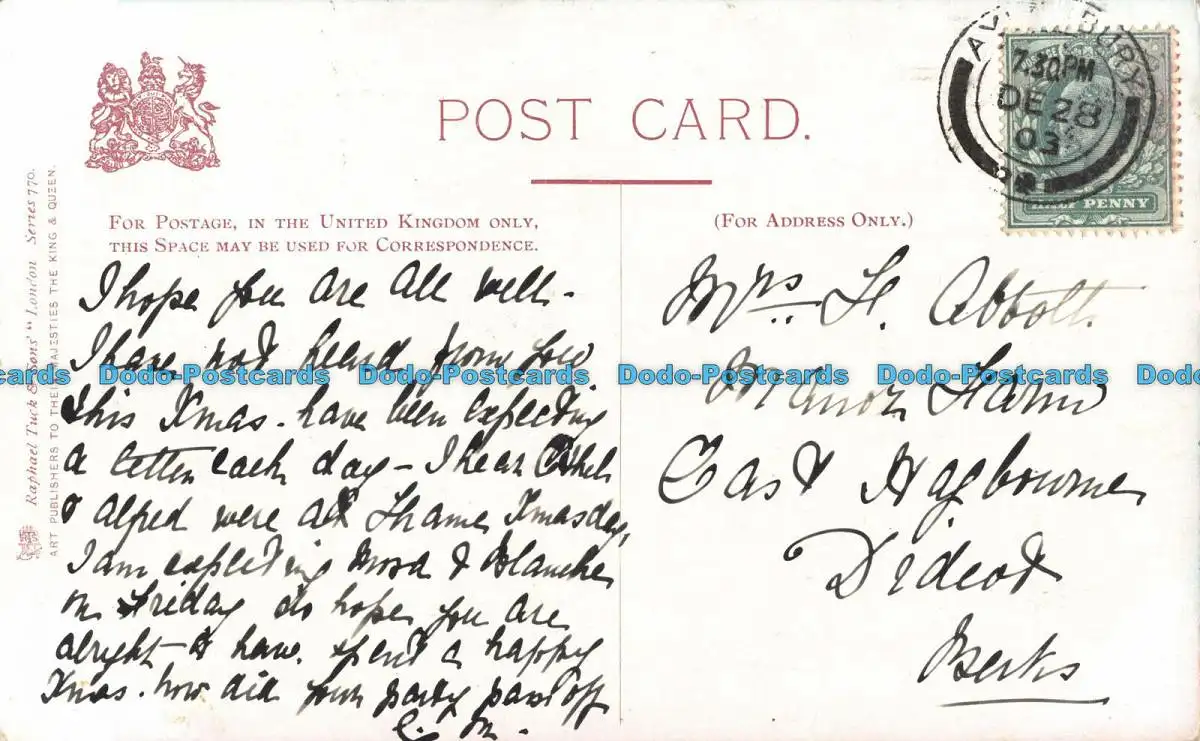 POST CARD.
FOR POSTAGE, IN THE UNITED KINGDOM ONLY,
THIS SPACE MAY BE USED FOR CORRESPONDENCE.
(FOR ADDRESS ONLY.)
7.30PM
DE 28
03
HALF PENNY
Raphael Tuck & Sons' "London Series 770.
ART PUBLISHERS TO THEIR MAJESTIES THE KING & QUEEN.
I hope you are all well-
I have not heard from you
this Xmas. have been expecting
a letter each day - I hear Ethel
& alfred were at Thame Xmasday,
I am expecting Nora & Blanche
on Friday do hope you are
alright - & have spent a happy
Xmas. how did your party pass off
C. M.
Mrs H. Abbott
Manor Farm
East Hagbourne
Didcot
Berks
Dodo-Postcards Dodo-Postcards Dodo-Postcards Dodo-Postcards Dodo-Postcards